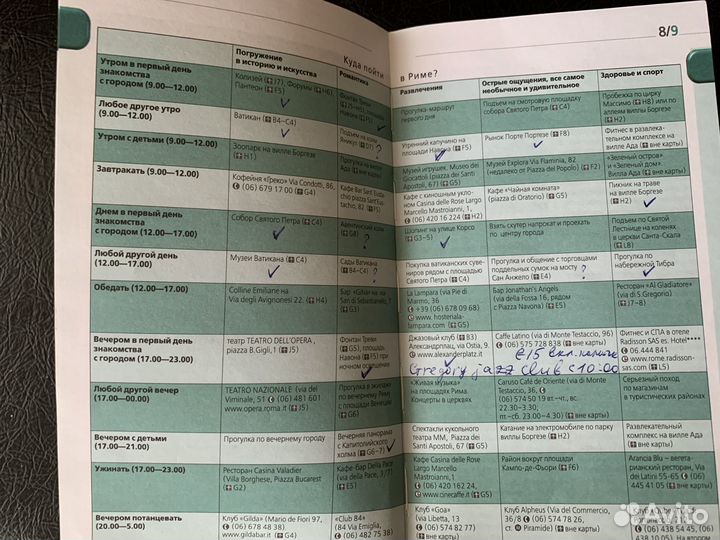 8/9
Куда пойти
в Риме?
Погружение
в историю и искусства
Романтика
Развлечения
Острые ощущения, все самое
необычное и удивительное
Здоровье и спорт
Утром в первый день
знакомства
с городом (9.00—12.00)
Колизей (J7), Форумы (H6),
Пантеон (E5)
Фонтан Треви
Навона (F5)
Прогулка-маршрут
первого дня
Подъем на смотровую площадку
собора Святого Петра (C4)
Пробежка по цирку
Массимо (H8) или по
аллеям виллы Боргезе
(H2)
Любое другое утро
(9.00—12.00)
Ватикан (B4—C4)
Подъем на холм
Яникул (D7)
?
Утренний капучино на
площади Навона (F5)
Рынок Порте Портезе (F8)
Фитнес в развлека-
тельном комплексе на
вилле Ада (вне карты)
Утром с детьми (9.00—12.00)
Зоопарк на вилле Боргезе
(H1)
Прогулка на вилле
Музей игрушек, Museo dei
Giocattoli (piazza dei Santi
Apostoli, 67) (G5)
Музей Explora Via Flaminia, 82
(недалеко от Piazza del Popolo) (F2)
«Зеленый остров»
и «Зеленый дом».
Вилла Ада (вне карты)
Завтракать (9.00—12.00)
Кофейня «Греко» Via Condotti, 86,
06) 679 17 00 (G4)
Кафе Bar Sant'Eusta-
chio (piazza Sant'Eus-
tachio, 82 (F5)
Кафе с киношным укло-
ном Casina delle Rose Largo
Marcello Mastroianni, 1,
(06) 420 16 224 (H2)
Кафе «Чайная комната»
(piazza di Oratorio) (G5)
Пикник на траве
на вилле Боргезе
(H2)
Днем в первый день
знакомства
с городом (12.00—17.00)
Собор Святого Петра (C4)
Авентинский холм
(G8)
?
Шопинг на улице Корсо
(G3—5)
Взять скутер напрокат и проехать
по центру города
Подъем по Святой
Лестнице на коленях
в церкви Санта-Скала
(L8)
Любой другой день
(12.00—17.00)
Музеи Ватикана (C4)
Сады Ватикана
(C4)
?
Покупка ватиканских суве-
ниров рядом с площадью
Святого Петра (C4)
Прогулка и общение с торговцами
поддельных сумок на мосту
Сан Анжело (E4)
?
Прогулка по
набережной Тибра
Обедать (12.00—17.00)
Colline Emiliane на
Via degli Avignonesi 22. (H4)
Бар «Gihan на via
San di Sebastianello,
(G3)
La Lampara (via Pie di
Marmo, 36
+39 (06) 678 09 68)
www. hosteriala-
lampara.com (G5)
Бар Jonathan's Angels
(via della Fossa 16, рядом
с piazza Navona) (E5)
Ресторан «Al Gladiatore»
(via di S.Gregorio)
(J7—8)
Вечером в первый день
знакомства
с городом (17.00—23.00)
театр ТЕАТРО DELL'OPERA,
piazza B.Gigli, 1 (J5)
Фонтан Треви
(G5), площадь
Навона (F5) при
ночном освещении
Джазовый клуб (B3)
Александрплац, via Ostia, 9.
www.alexanderplatz.it
Caffe Latino (via di Monte Testaccio, 96)
(06) 575 588 38 (вне карты)
Фитнес и СПА в отеле
Radisson SAS es. Hotel****
06.444 841
www.rome.radisson-
sas.com (L5)
€15 вкл. напиток
Gregory jazz club с 10:00
Любой другой вечер
(17.00—00.00)
TEATRO NAZIONALE (via del
Viminale, 51 (06) 481 601
www.opera.roma.it (J5)
Прогулка в экипаже
по вечернему Риму
с площади Венеции
(G6)
«Живая музыка»
на площадях Рима.
Концерты в церквях
Caruso Café de Oriente (via di Monte
Testaccio, 36)
(06) 574 50 19 вт.-чт., вс.
22.30—3.30;
пт.-сб. 23.00—4.30
(вне карты)
Серьезный поход
по магазинам
в туристических районах
Вечером с детьми
(17.00—21.00)
Прогулка по вечернему городу
Вечерняя панорама
с Капитолийского
холма (G6—7)
Спектакли кукольного
театра ММ, Piazza dei
Santi Apostoli, 67 (G5)
Катание на электромобиле по парку
Боргезе (H2)
Развлекательный
комплекс на вилле
Ада (вне карты)
Ужинать (17.00—23.00)
Ресторан Casina Valadier
(Villa Borghese, Piazza Bucarest
(G2)
Кафе-Бар Della Pace
(via della Pace, 3/7)
(E5)
Кафе Casina delle Rose
Largo Marcello
Mastroianni, 1
(06) 420 162 24,
www.cinecaffe.it (G5)
Район вокруг площади
Кампо-де-Фьори (F6)
Arancia Blu — вегета-
рианский ресторан, Via
dei Latini 55-65 (06)
445 41 05 (вне карты)
Вечером потанцевать
(20.00—5.00)
Клуб «Gilda» (Mario de Fiori 97,
(06) 678 48 38)
www.gildabar.it (G4)
«Club 84»
(84 Via Emiglia,
(06) 482 75 38)
Клуб «Goa»
(via Libetta, 13
(06) 574 82 77)
(вне карты)
Клуб Alpheus (Via del Commercio,
36/8 (06) 574 78 26,
ст. Piramide) (вне карты)
(06) 438 54 45, (06)
438 09 10.05) На втором
Avito